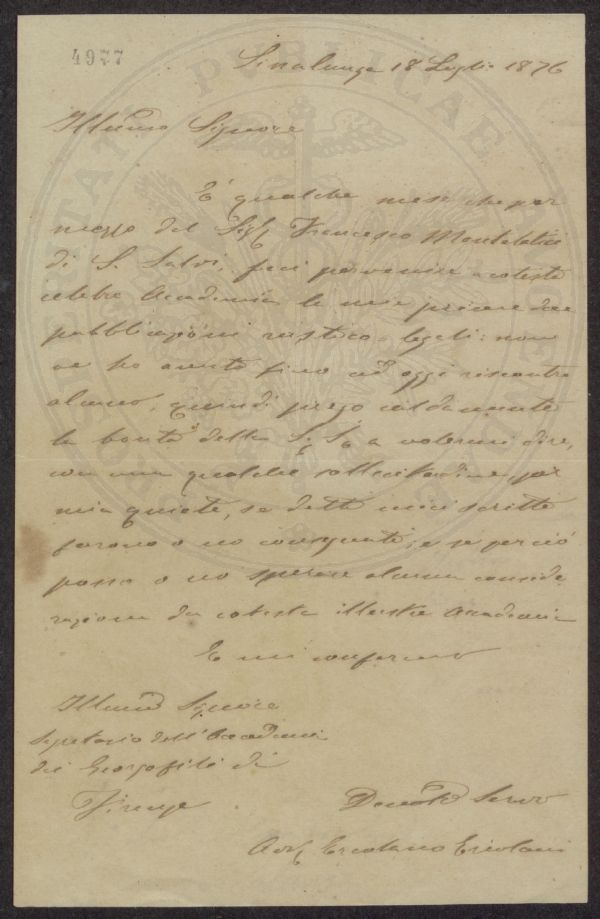 4977
Sinalunga 18 Luglio 1876
Illmo Signore
È qualche mese che per
mezzo del Sig. Francesco Montelatici
di S. Salvi, feci pervenire a cotesta
celebre Accademia le mie prime due
pubblicazioni rustico-legali: non
ne ho avuto fino ad oggi riscontro
alcuno, quindi prego caldamente
la bontà della S. Sa a volermi dire,
con una qualche sollecitudine, per
mia quiete, se detti miei scritti
furono o no consegnati, e se perciò
posso o no sperare alcuna conside
razione da cotesta illustre Accademia
E mi confermo
Illmo Signore
Segretario dell'Accademia
dei Georgofili di
Firenze
Devoto Servo
Avv. Ercolano Ercolani